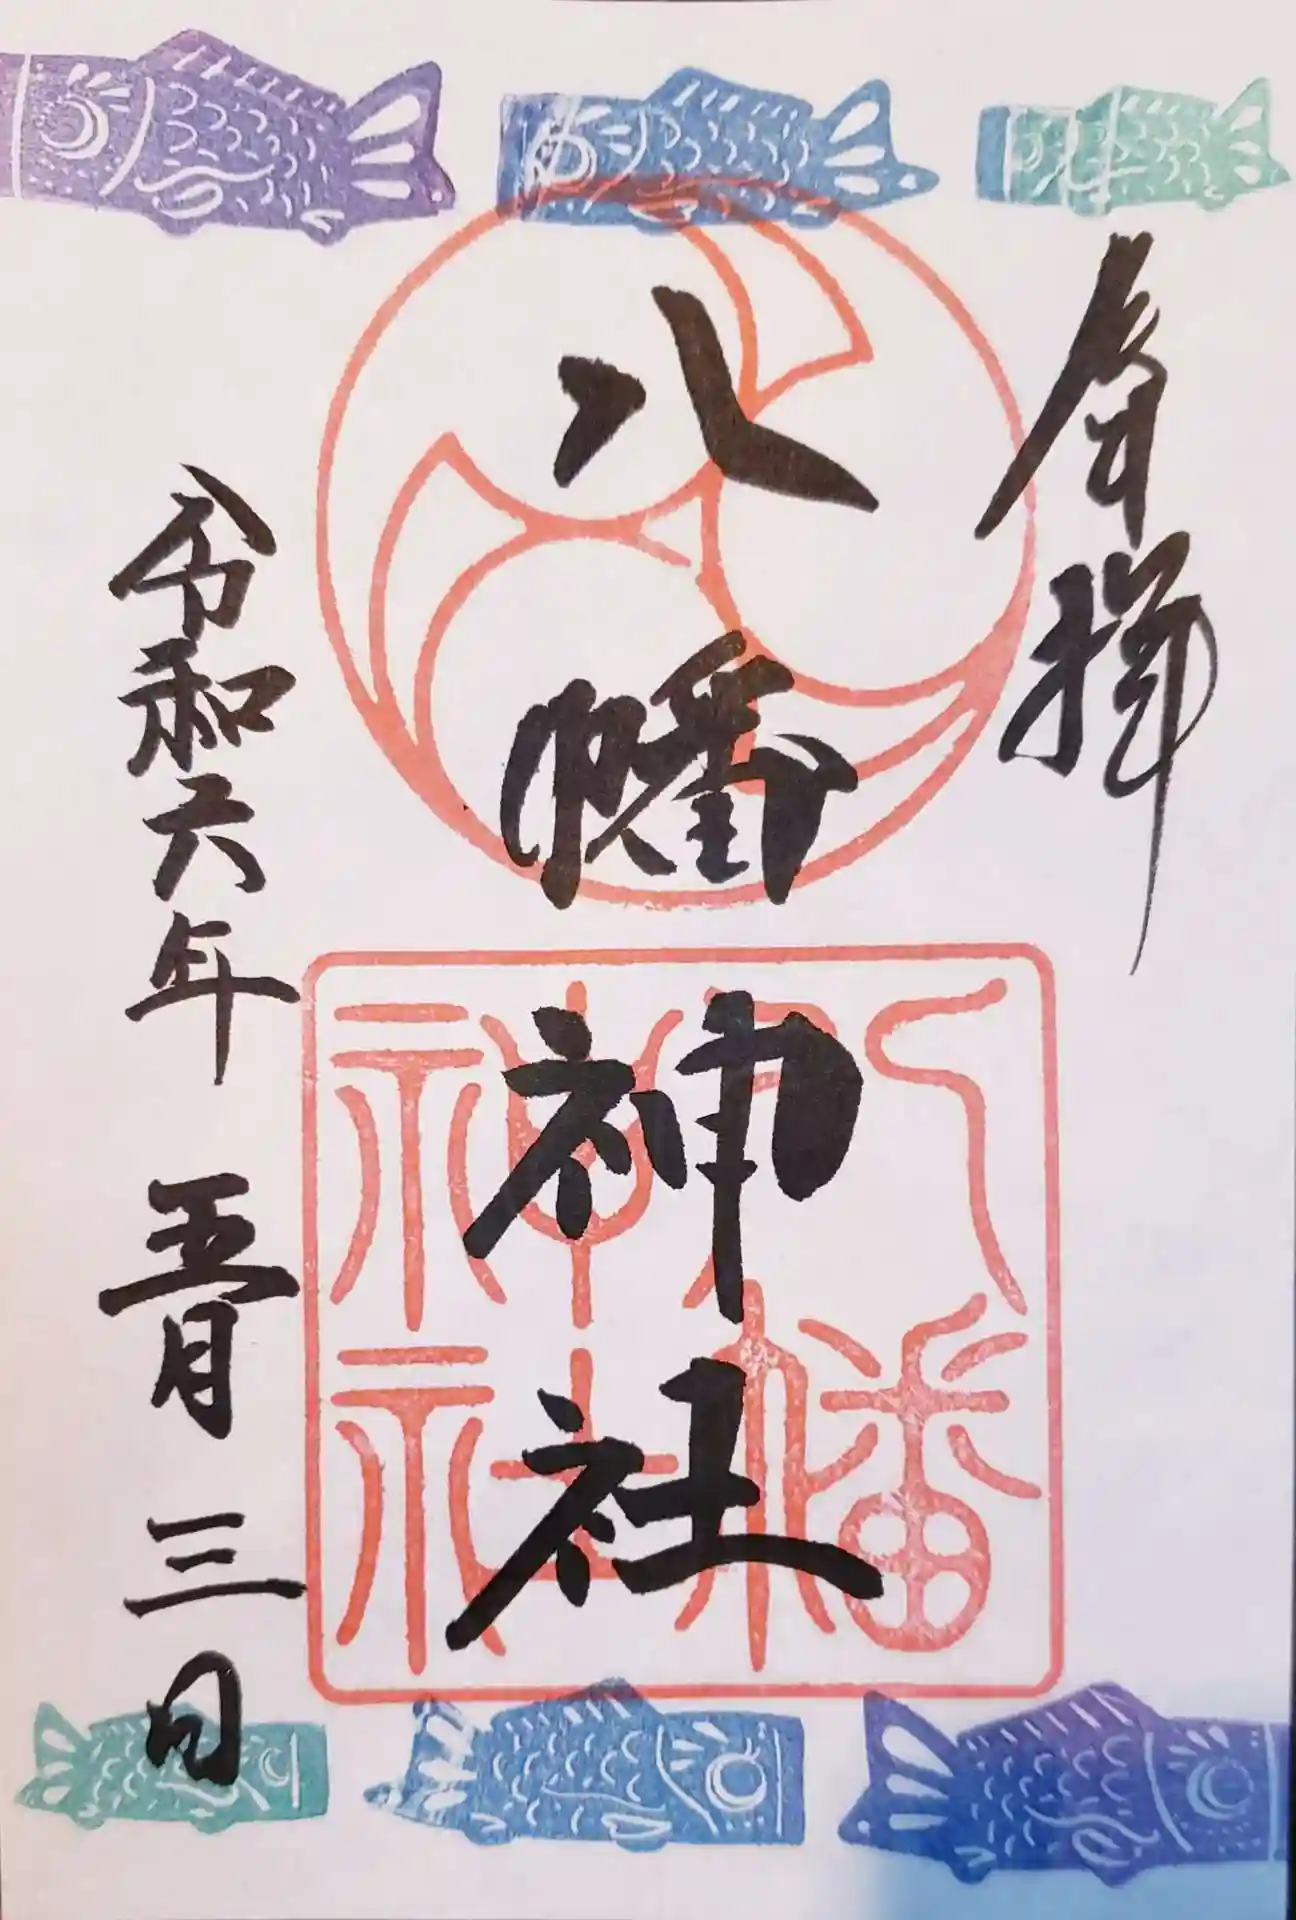 奉拝
八幡神社
令和六年 五月 三日
八幡
神社